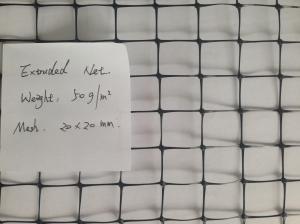 Extruded Net.
Weight. 50g/m²
Mesh. 20×20mm.